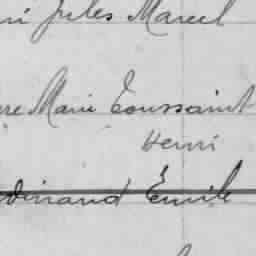 ri Jules Marcel
re Marie Toussaint
Henri
dinand Emile